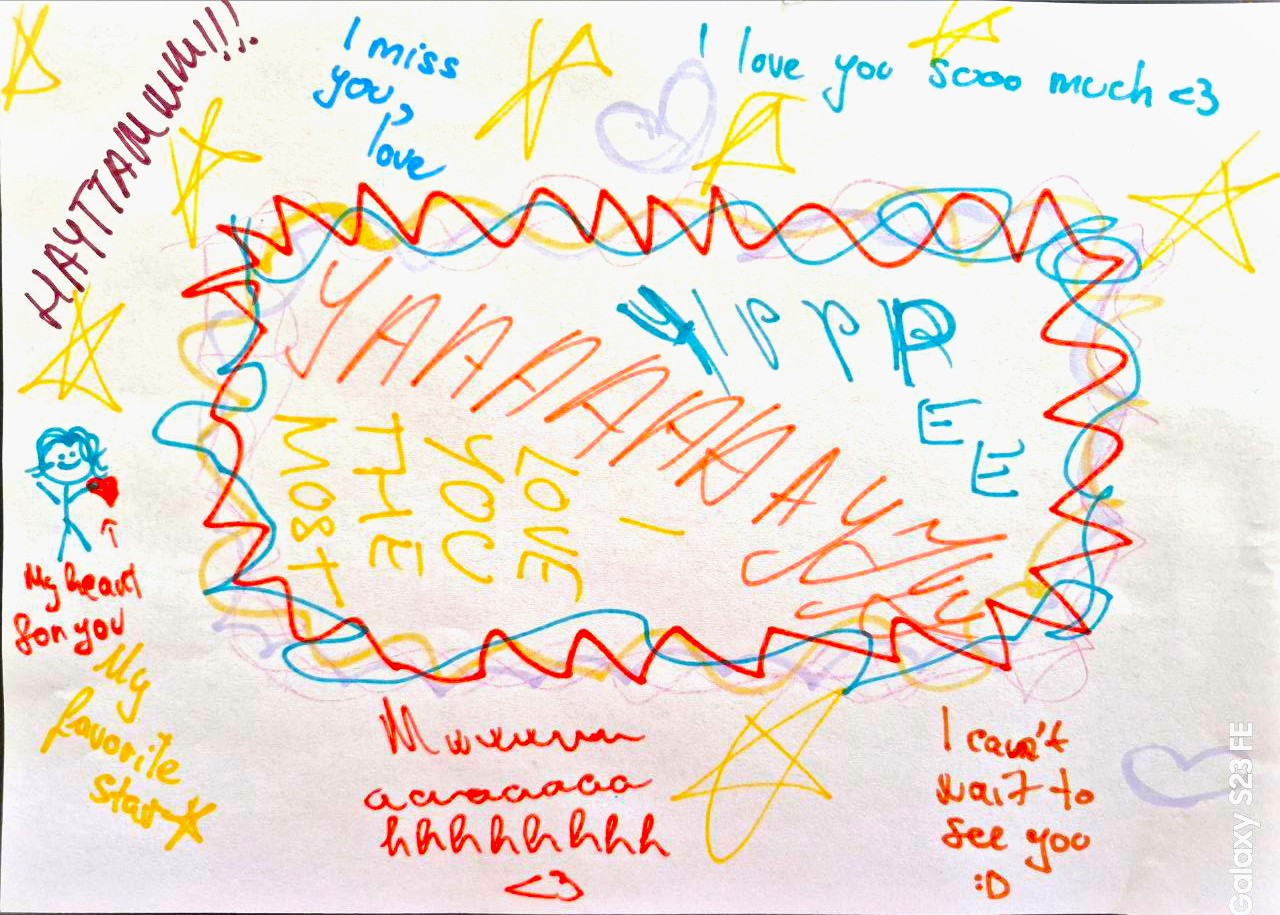 HAYTTAMMMM!!!
I miss
you,
love
I love you sooo much <3
YAAAAAAAAYYYYY
YIPPPEE
I
LOVE
YOU
THE
MOST
My heart
for you
My
favorite
star
Muuuuu
aaaaaaaa
hhhhhhhh
<3
I can't
wait to
see you
:D
Galaxy S23 FE